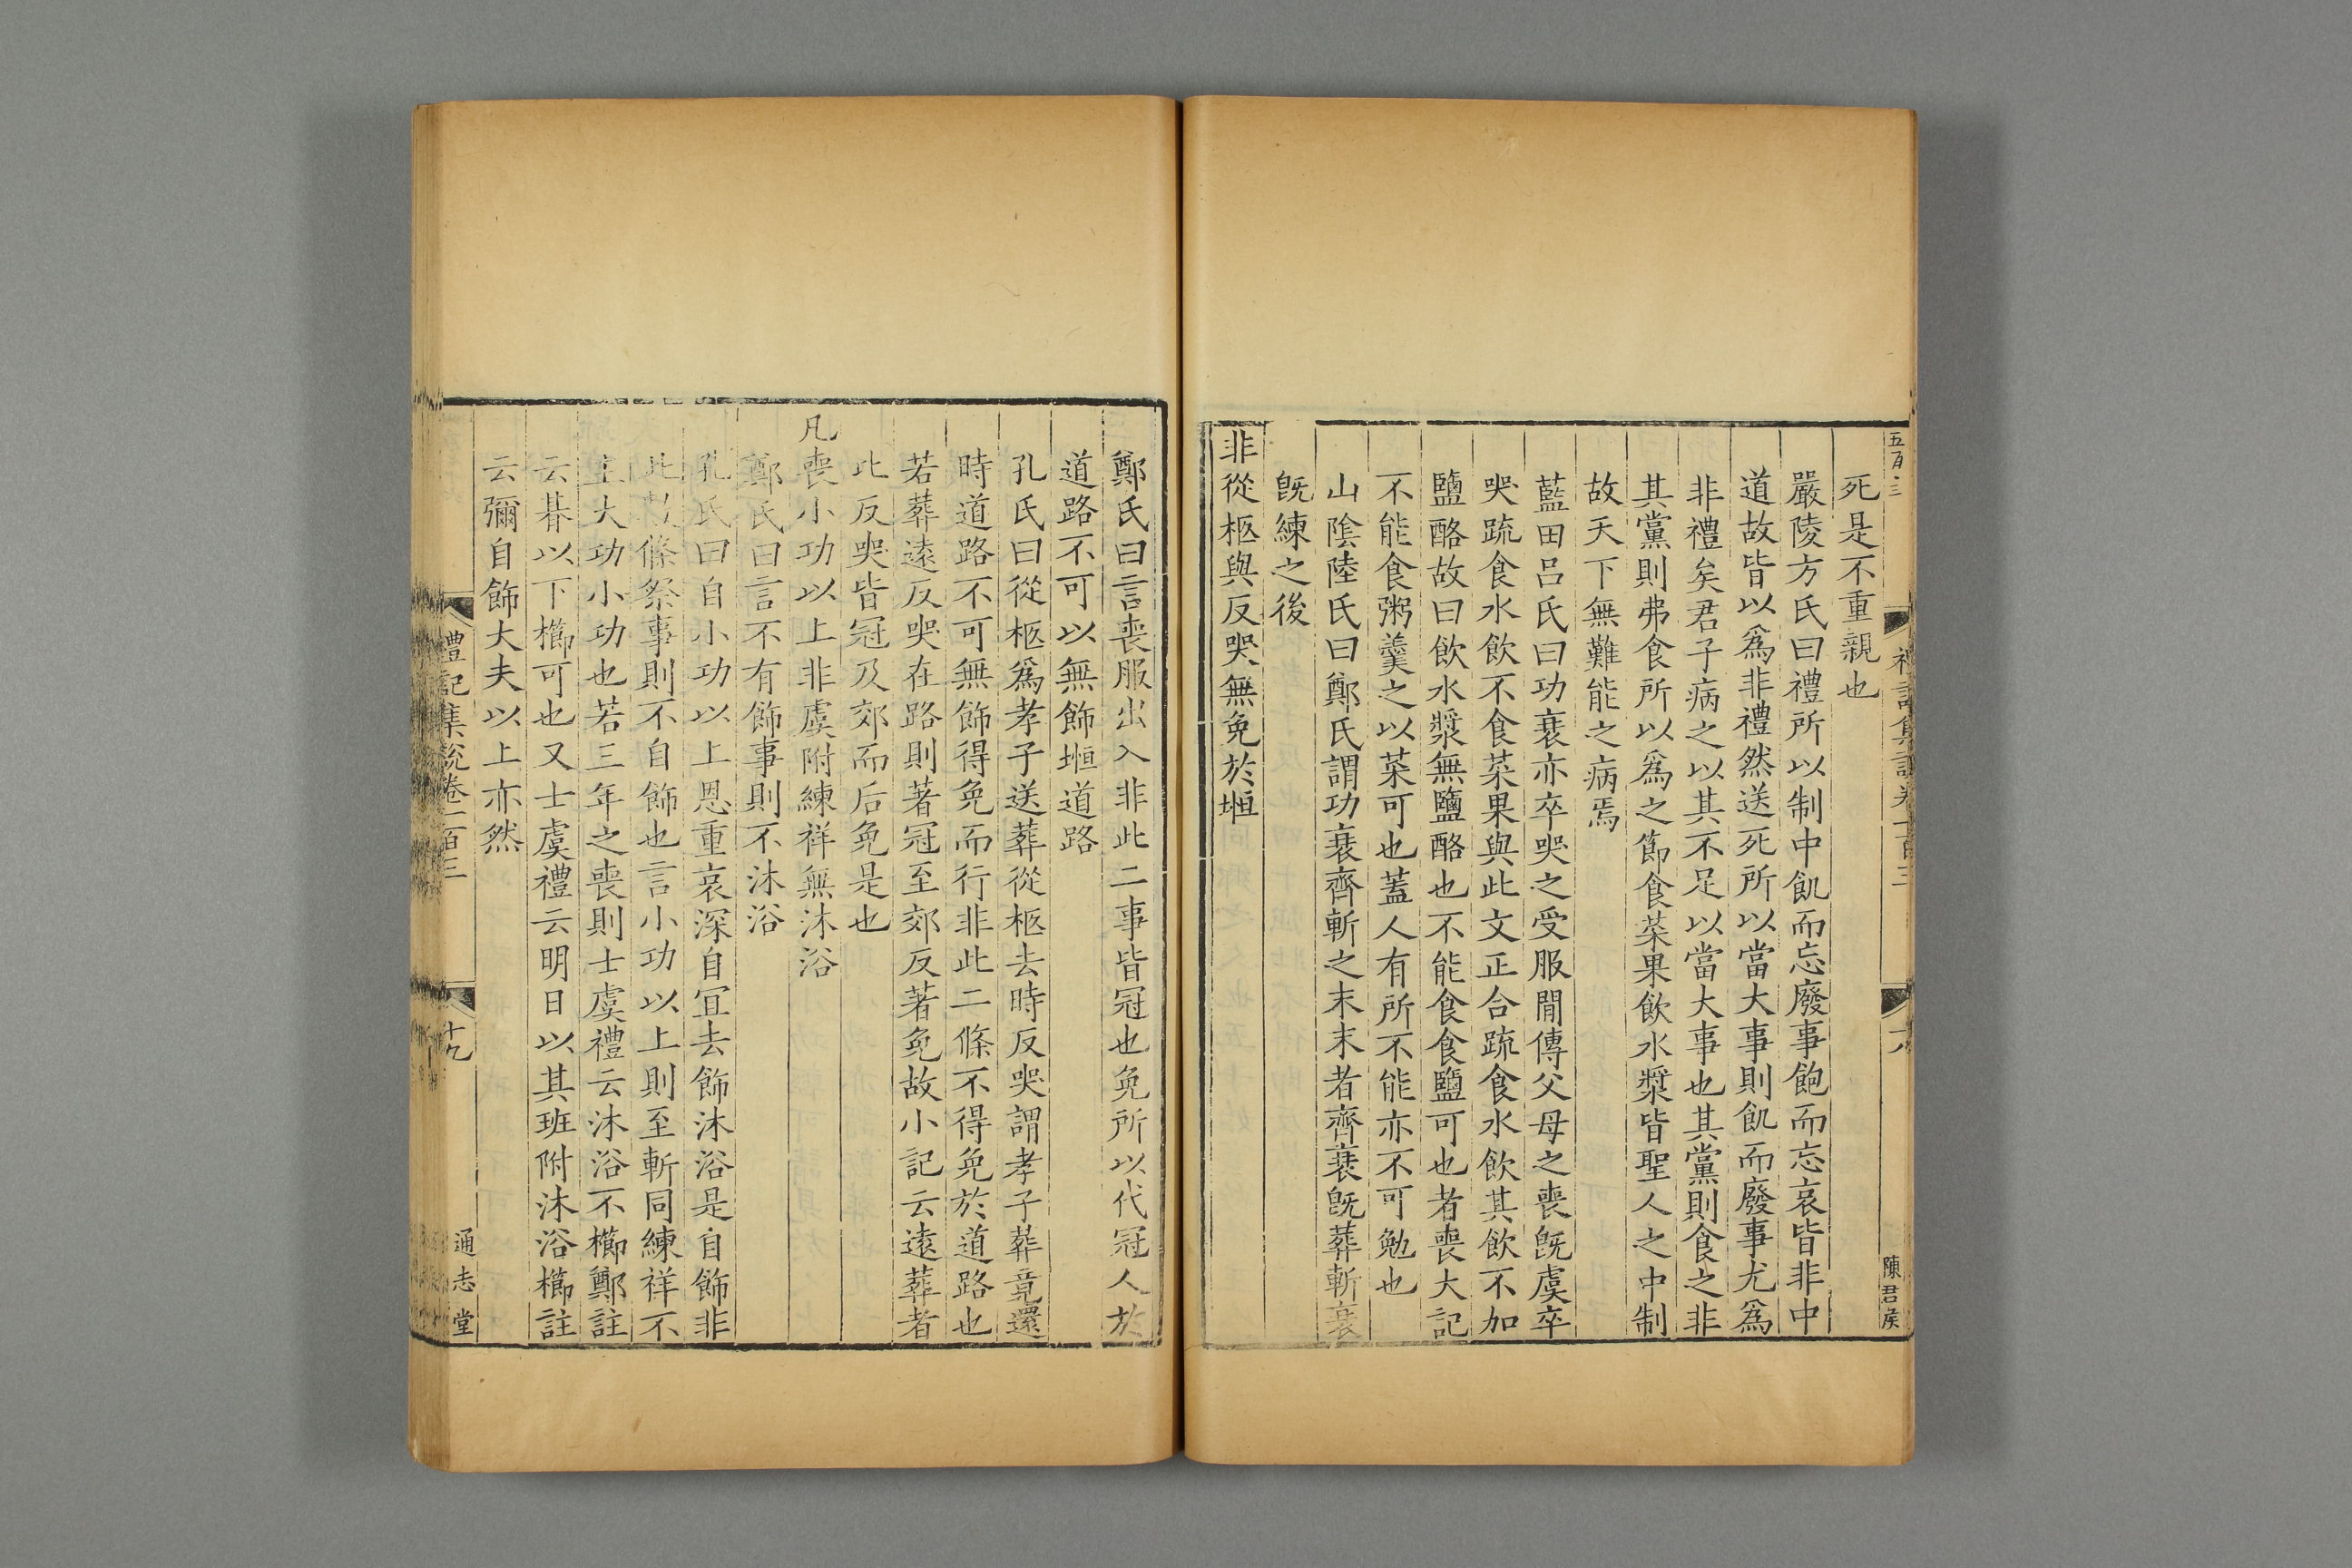 死是不重親也
嚴陵方氏曰禮所以制中飢而忘廢事飽而忘哀皆非中
道故皆以爲非禮然送死所以當大事則飢而廢事尤爲
非禮矣君子病之以其不足以當大事也其黨則食之非
其黨則弗食所以爲之節食菜果飲水漿皆聖人之中制
故天下無難能之病焉
藍田呂氏曰功衰亦卒哭之受服閒傳父母之喪旣虞卒
哭疏食水飲不食菜果與此文正合疏食水飲其飲不加
鹽酪故曰飲水漿無鹽酪也不能食食鹽可也者喪大記
不能食粥羹之以菜可也蓋人有所不能亦不可勉也
山陰陸氏曰鄭氏謂功衰齊斬之末末者齊衰旣葬斬衰
旣練之後
非從柩與反哭無免於堩
禮記集說卷一百三
陳君矦
鄭氏曰言喪服出入非此二事皆冠也免所以代冠人於
道路不可以無飾堩道路
孔氏曰從柩爲孝子送葬從柩去時反哭謂孝子葬竟還
時道路不可無飾得免而行非此二條不得免於道路也
若葬遠反哭在路則著冠至郊反著免故小記云遠葬者
比反哭皆冠及郊而后免是也
凡喪小功以上非虞附練祥無沐浴
鄭氏曰言不有飾事則不沐浴
孔氏曰自小功以上恩重哀深自宜去飾沐浴是自飾非
此數條祭事則不自飾也言小功以上則至斬同練祥不
主大功小功也若三年之喪則士虞禮云沐浴不櫛鄭註
云朞以下櫛可也又士虞禮云明日以其班附沐浴櫛註
云彌自飾大夫以上亦然
禮記集說卷一百三
十九
通志堂